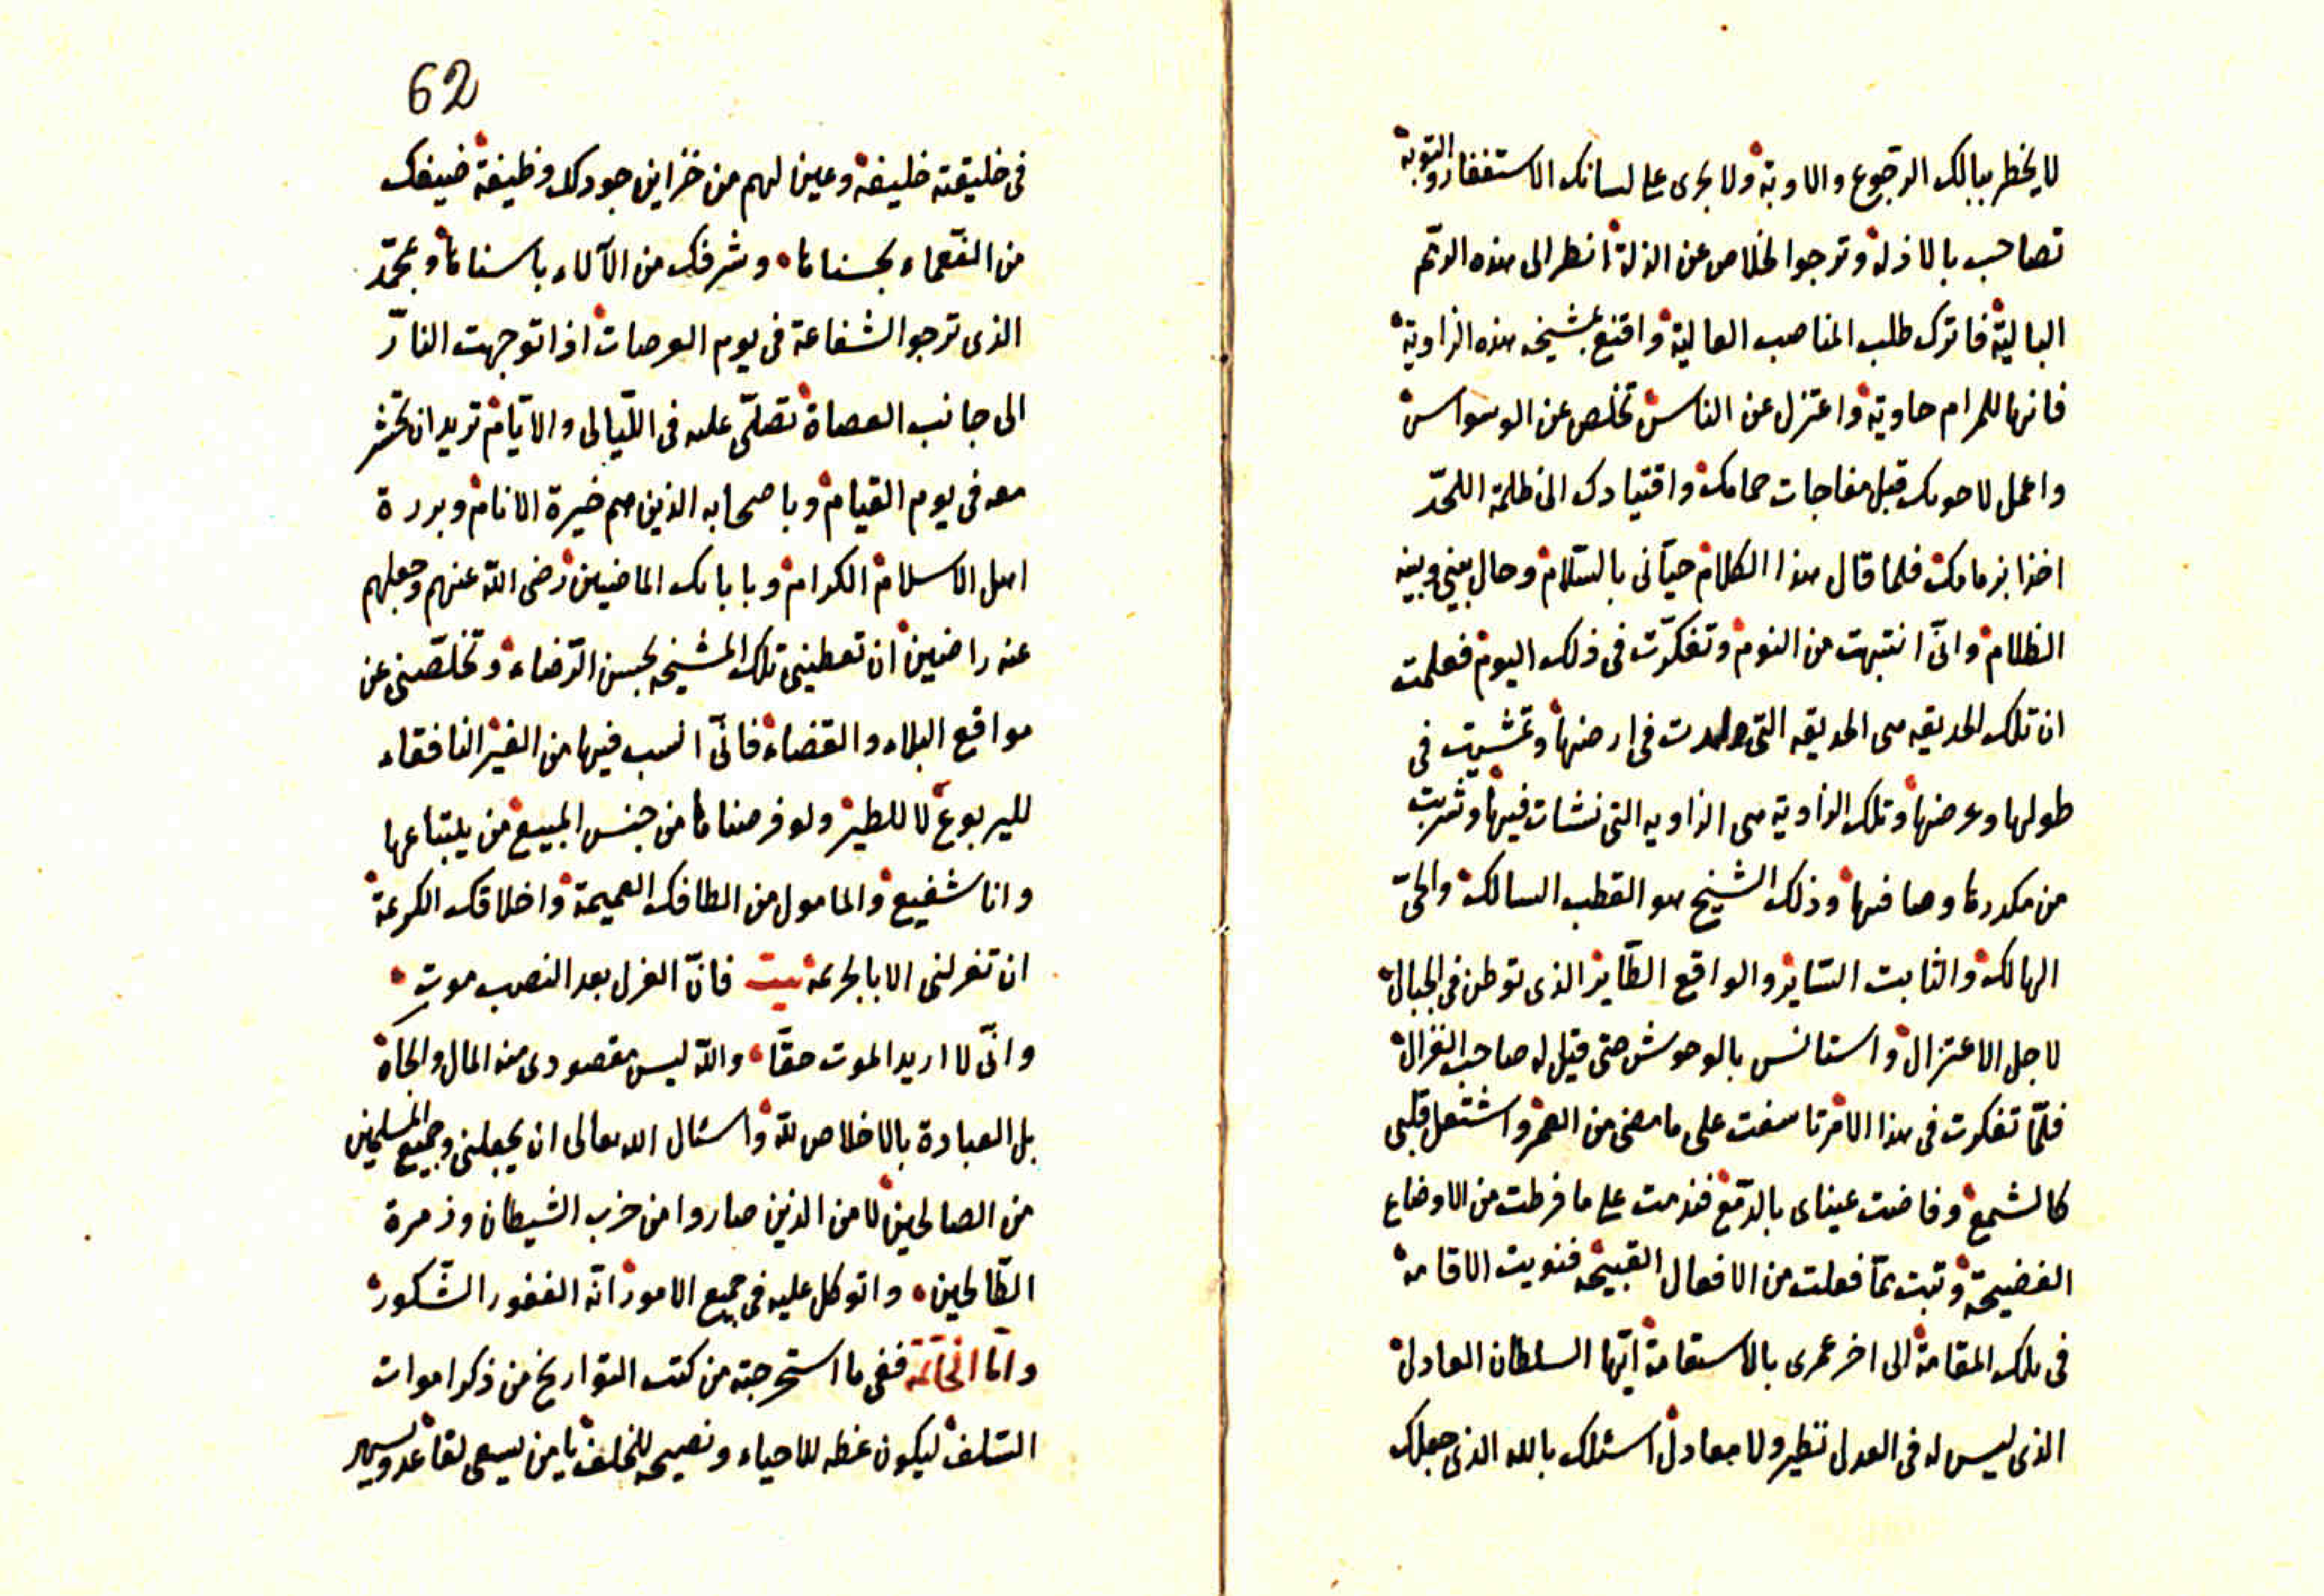 لا يخطر ببالك الرجوع والاوبة ولا يجرى على لسانك الاستغفار والتوبة
تصاحب بالاذلة وترجوا الخلاص عن الزلة انظر الى هذه الرمم
البالية فاترك طلب المناصب العالية واقنع بمشيخه هذه الزاوية
فانها للمرام حاوية واعتزل عن الناس تخلص عن الوسواس
واعمل لاخويك قبل مفاجات حمامك واقتيادك الى ظلمة اللحد
اخذا بزمامك فلما قال هذا الكلام حيّانى بالسّلام وحال بينى وبينه
الظلام وانّى انتبهت من النوم وتفكّرت فى ذلك اليوم فعلمت
ان تلك الحديقه هى الحديقه التى ولدت فى ارضها وتمشّيت فى
طولها وعرضها وتلك الزاوية هى الزاويه التى نشات فيها وشربت
من مكدرها وصافيها وذلك الشيخ هو القطب السالك والحىّ
الهالك والثابت السّاير والواقع الطّاير الذى توطن فى الجبال
لاجل الاعتزال واستانس بالوحوش حتى قيل له صاحب الغزال
فلمّا تفكرت فى هذا الامر تاسفت على ما مضى من العمر واشتعل قلبى
كالشمع وفاضت عيناى بالدّمع فندمت على ما فرطت من الاوضاع
الفضيحة وتبت عمّا فعلت من الافعال القبيحه فنويت الاقامة
فى تلك المقامة الى اخر عمرى بالاستقامة ايّها السلطان العادل
الذى ليس له فى العدل نظير ولا معادل اسئلك بالله الذى جعلك
62
فى خليقته خليفة وعين لهم من خزاين جودك وظيفة ضيفك
من النّعماء بحسناها وشرفك من الآلاء باسناها وبمحمّد
الذى ترجوا الشفاعة فى يوم العرصات اذا توجهت النار
الى جانب العصاة تصلّى عليه فى اللّيالى والايّام تريد ان تحشر
معه فى يوم القيام وباصحابه الذين هم خيرة الانام وبررة
اهل الاسلام الكرام وبابائك الماضين رضى الله عنهم وجعلهم
عنه راضين ان تعطينى تلك المشيخه بحسن الرّضاء وتخلّصنى عن
مواقع البلاء والقضاء فانّى انسب فيها من الغير النافقاء
لليربوع لا للطير ولو فرضناها من جنس المبيع من يبتاعها
وانا شفيع والمامول من الطافك العميمة واخلاقك الكريمة
ان تعزلنى الا بالجريمة بيت فانّ العزل بعد النصب موت
وانّى لا اريد الموت حقّا والله ليس مقصودى منه المال والجاه
بل العبادة بالاخلاص لله واسئال الله تعالى ان يجعلنى وجميع المسلمين
من الصالحين لا من الذين صاروا من حزب الشيطان وزمرة
الطّالحين واتوكل عليه فى جميع الامور انّه الغفور الشّكور
وامّا الخاتمة ففى ما استخرجته من كتب التواريخ من ذكر اموات
السّلف ليكون عظه للاحياء ونصيحه للخلف يا من يسعى لقاعد ويسهر